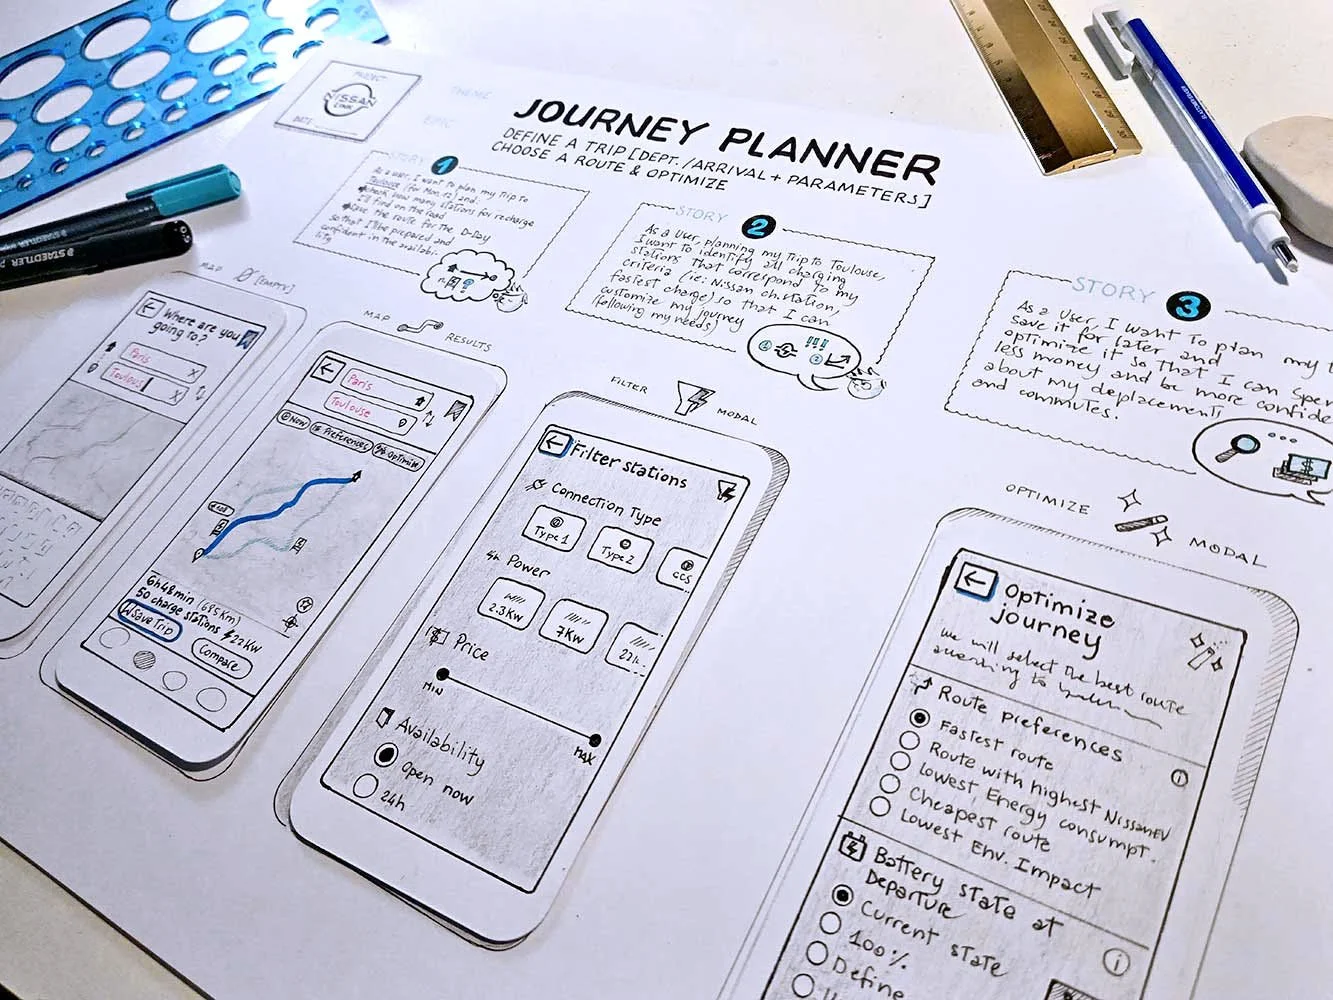 PROJECT
NISSAN
LINK
DATE
THEME
EPIC
JOURNEY PLANNER
DEFINE A TRIP [DEPT./ARRIVAL + PARAMETERS]
CHOOSE A ROUTE & OPTIMIZE
STORY 1
As a user, I want to plan my Trip to
Toulouse (for Mon.12) and:
check how many stations for recharge
I'll find on the road
save the route for the D-Day
so that I'll be prepared and
confident in the availabi
lity
STORY 2
As a User, planning my Trip to Toulouse,
I want to identify all charging
stations that correspond to my
criteria (ie: Nissan ch. station,
fastest charge) so that I can
customize my journey
(following my needs)
!!!
STORY 3
As a User, I want to plan my t
save it for later and
optimize it so that I can spen
less money and be more confide
about my deplacements
and commutes.
STAEDTLER
STAEDTLER
MAP [EMPTY]
Where are you
going to?
Paris X
Toulous X
MAP RESULTS
Paris
Toulouse
Now Preferences Optimize
6h48min (695Km)
50 charge stations 22KW
Save Trip
Compare
FILTER MODAL
Filter stations
Connection Type
Type 1 Type 2 CCS
Power
2.3KW 7KW 22k
Price
MIN MAX
Availability
Open now
24h
OPTIMIZE MODAL
Optimize
journey
we will select the best route
according to
Route preferences
Fastest route
Route with highest NissanEV
Lowest Energy consumpt.
Cheapest route
Lowest Env. Impact
Battery state at
Departure
Current state
100%
Define